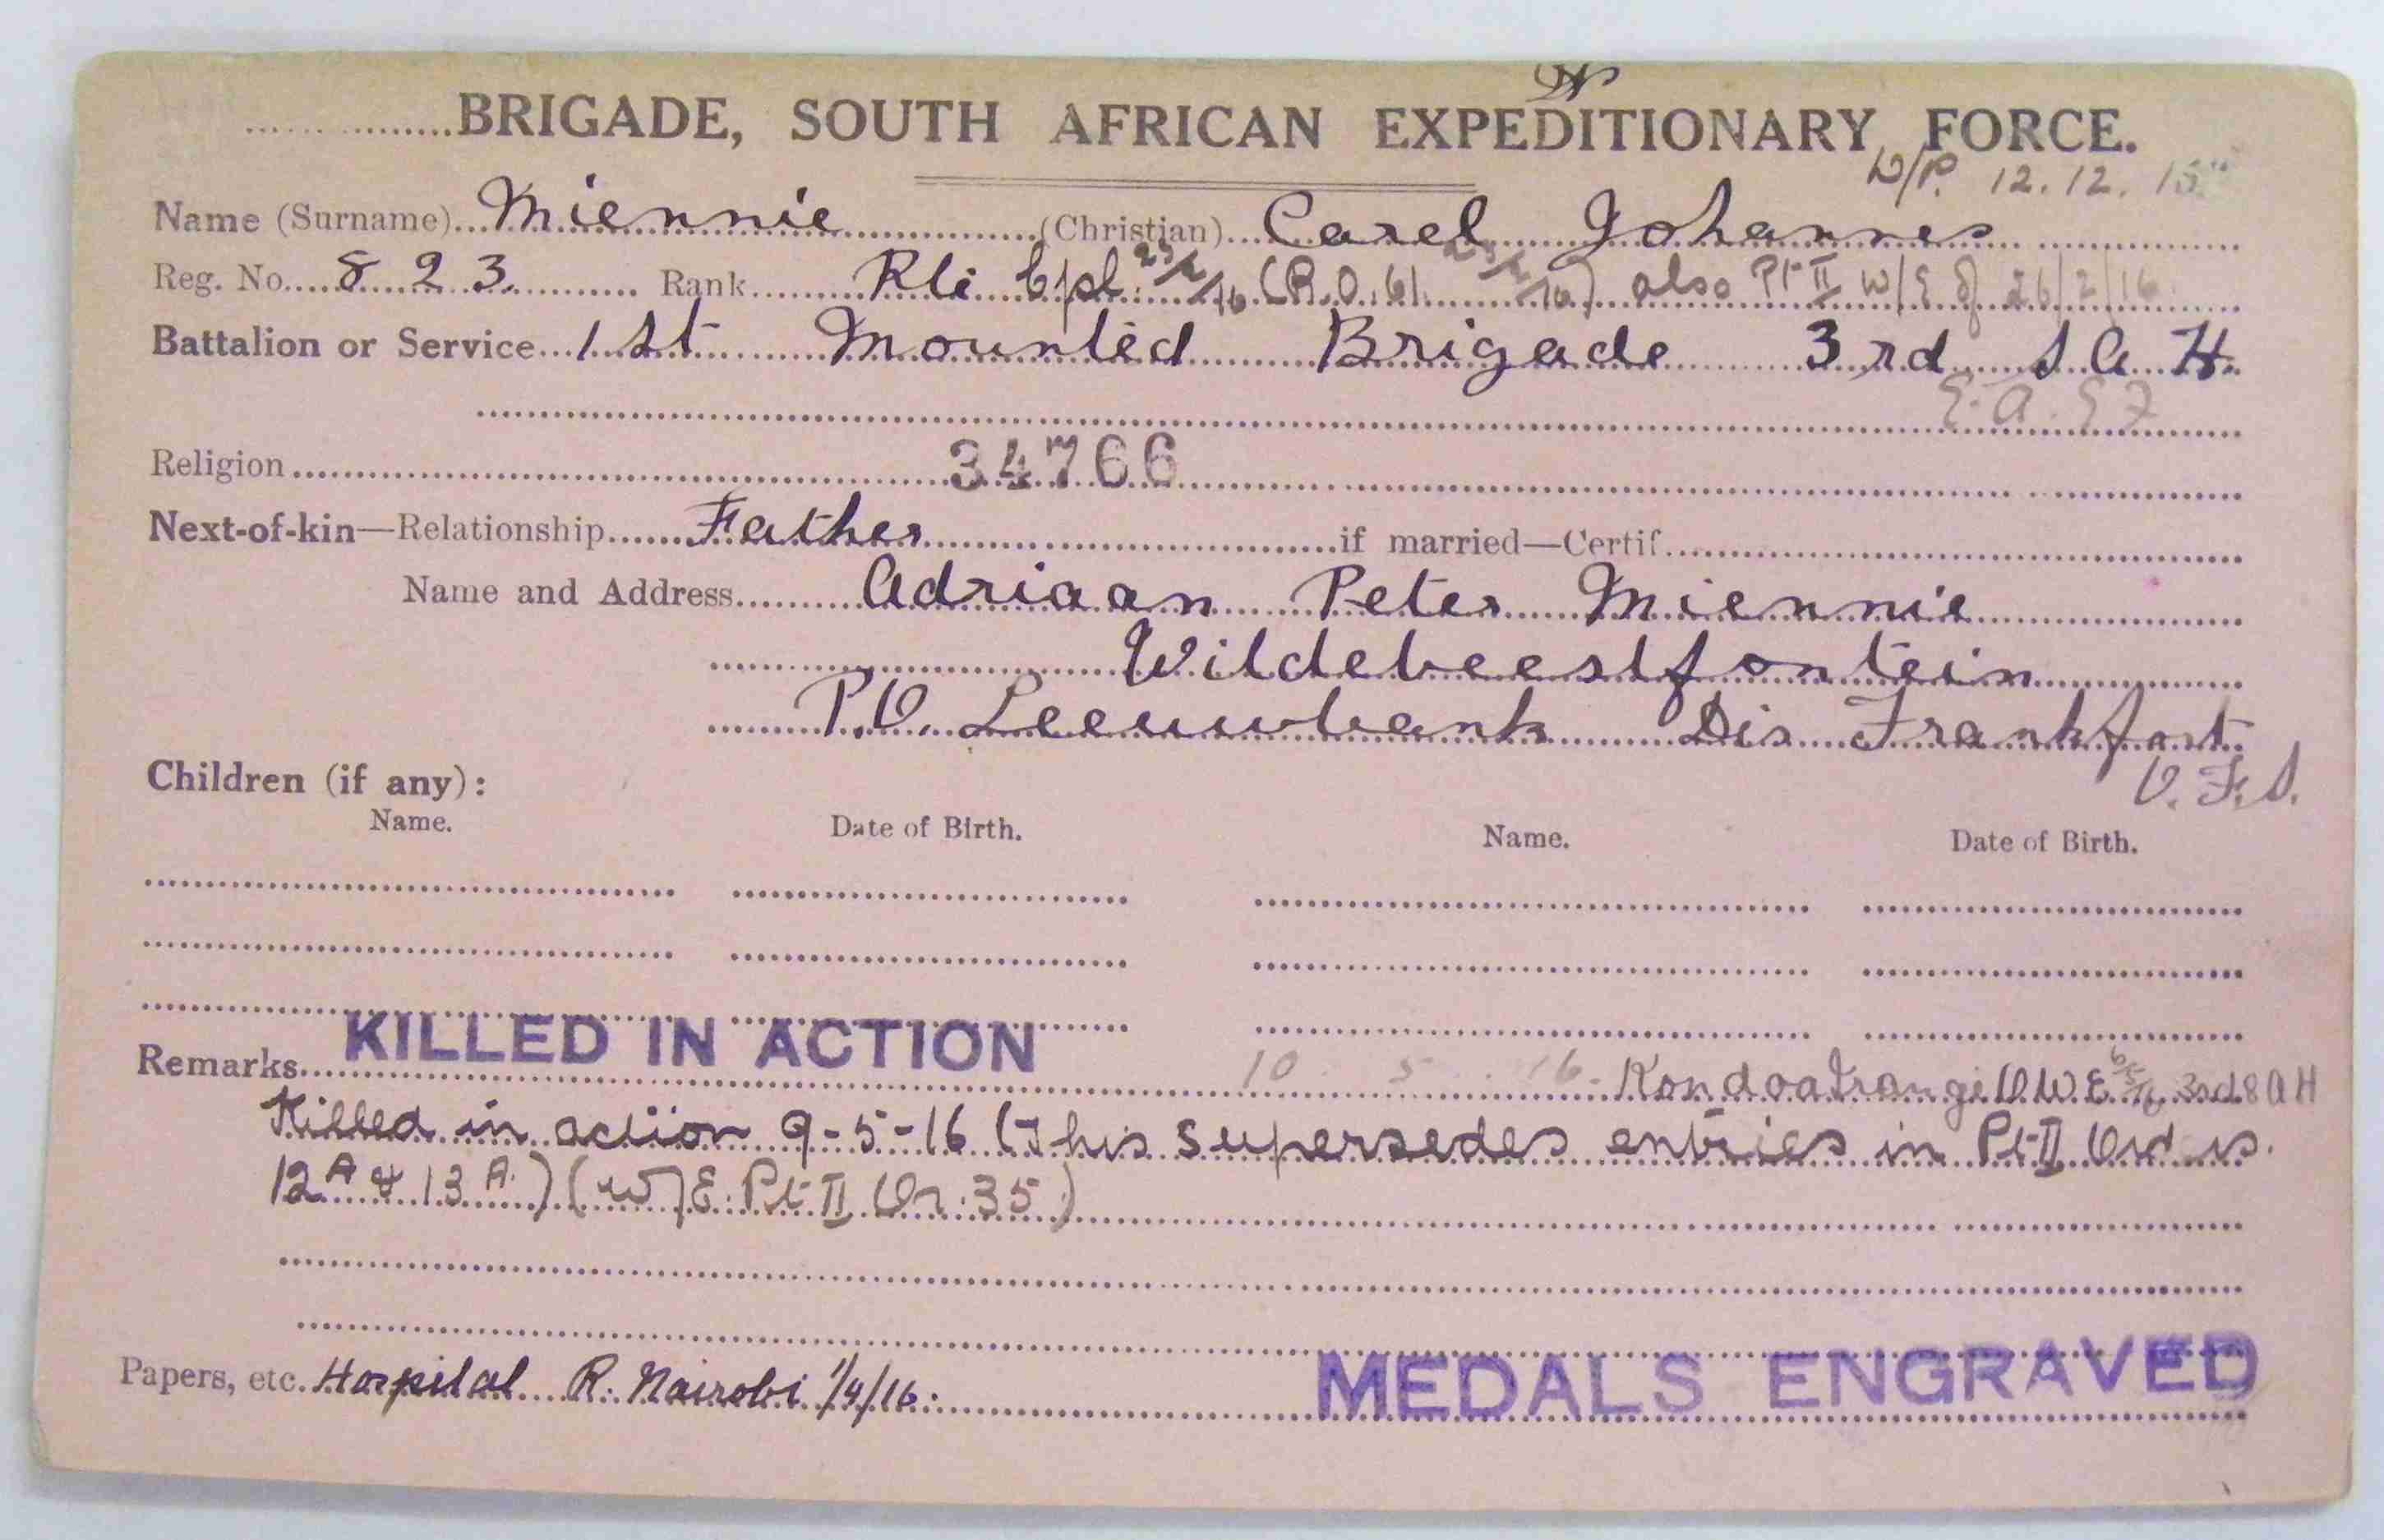 BRIGADE, SOUTH AFRICAN EXPEDITIONARY FORCE.
W/P. 12.12.15
Name (Surname) Miennie (Christian) Carel Johannes
Reg. No. 823. Rank Rli Cpl. 23/2/16 (R.O. 61 23/2/16) also Pt II W/E of 26/2/16
Battalion or Service 1st Mounted Brigade 3rd S A H.
E. A. E F
Religion 34766
Next-of-kin—Relationship Father if married—Certif.
Name and Address Adriaan Peter Miennie
Wildebeestfontein
P.O. Leeuwbank Dis Frankfort
O. F. S.
Children (if any):
Name. Date of Birth. Name. Date of Birth.
KILLED IN ACTION
Remarks 10 5 16. Kondoa Irangi O.W.E. 3rd S A H
Killed in action 9-5-16 (This supersedes entries in Pt II Ord rs.
12A & 13A.) (W/E. Pt II Or. 35)
Papers, etc. Hospital R. Nairobi 1/4/16.
MEDALS ENGRAVED